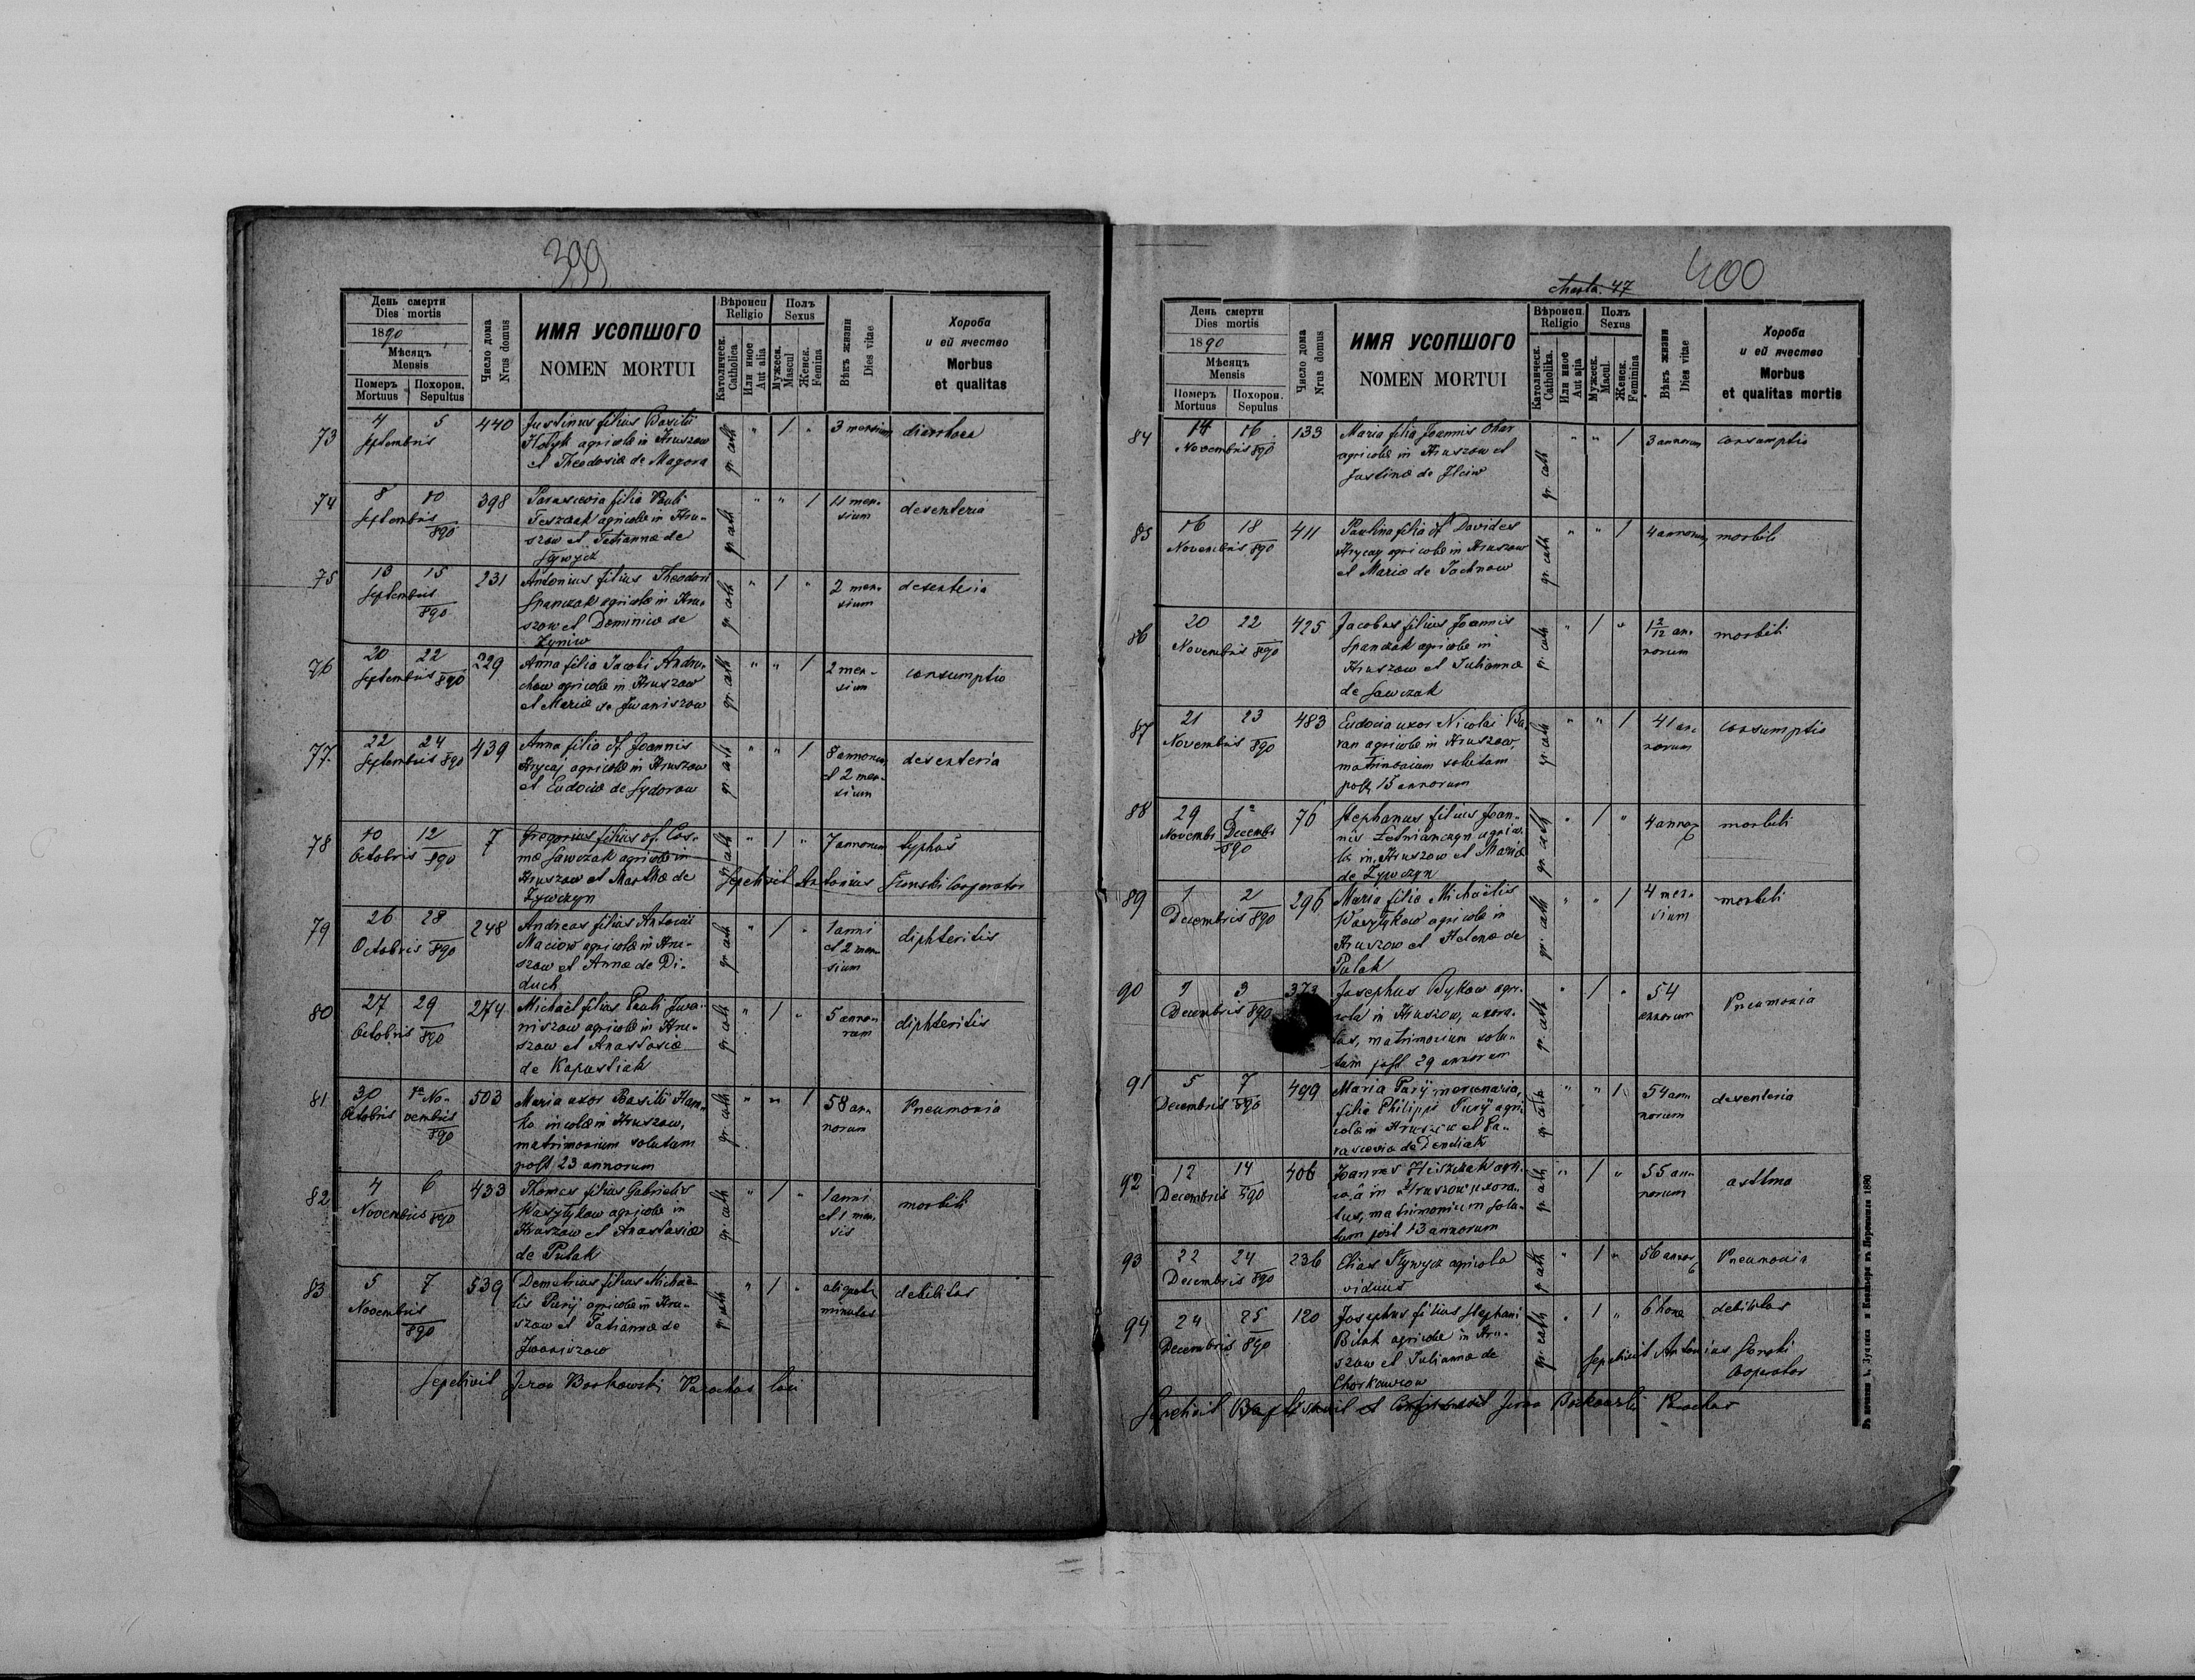 399
День смерти
Dies mortis
1890
Мѣсяцъ
Mensis
Померъ
Mortuus
Похорон.
Sepultus
Число дома
Nrus domus
ИМЯ УСОПШОГО
NOMEN MORTUI
Вѣроисп
Religio
Католическ.
Catholica
Или иное
Aut alia
Полъ
Sexus
Мужеск.
Mascul
Женск.
Femina
Вѣкъ жизни
Dies vitae
Хороба
и ей ячество
Morbus
et qualitas
73
4 5
Septembris
440
Justinus filius Basilii
agricolæ in Hruszow
et Theodosiæ de Magora
gr. cath
" 1 "
3 mensium
diarrhoea
74
8 10
Septembris
890
398
Parascevia filia Pauli
agricolæ in Hru-
szow et Tatiannæ de
Stywycz
gr. cath
" " 1
11 men-
sium
desenteria
75
13 15
Septembris
890
231
Antonius filius Theodori
Spanczak agricolæ in Hru-
szow et Dominicæ de
Zyniw
gr. cath
" 1 "
2 men-
sium
desenteria
76
20 22
Septembris 890
229
Anna filia Jacobi Andru-
chow agricolæ in Hruszow
et Mariæ de Iwaniszow
gr. cath
" " 1
2 men-
sium
consumptio
77
22 24
Septembris 890
439
Anna filia of Joannis
Hrycaj agricolæ in Hruszow
et Eudociæ de Sydorow
gr. cath
" " 1
8 annorum
et 2 men-
sium
desenteria
78
10 12
Octobris 890
7
Gregorius filius of. Cos-
mæ Sawczak agricolæ in
Hruszow et Marthæ de
Zywczyn
gr. cath
" 1 "
7 annorum
typhus
Sepelivit Antonius Cooperator
79
26 28
Octobris 890
248
Andreas filius Antonii
Maciow agricolæ in Hru-
szow et Annæ de Di-
duch
gr. cath
" 1 "
1 anni
et 2 men-
sium
diphteritis
80
27 29
Octobris 890
274
Michaël filius Pauli Iwa-
niszow agricolæ in Hru-
szow et Anastasiæ
de Kapustiak
gr. cath
" 1 "
5 anno-
rum
diphteritis
81
30 1a No-
Octobris vembris
890
503
Maria uxor Basilii
incolæ in Hruszow,
matrimonium solutum
post 23 annorum
gr. cath
" " 1
58 an-
norum
Pneumonia
82
4 6
Novembris 890
433
Thomas filius Gabrielis
Wasylykow agricolæ in
Hruszow et Anastasiæ
de Pulak
gr. cath
" 1 "
1 anni
et 1 men-
sis
morbili
83
5 7
Novembris
890
539
Demetrius filius Michaë-
lis Puzij agricolæ in Hru-
szow et Tatiannæ de
Iwaniszow
gr. cath
" 1 "
aliquot
minutas
debilitas
Sepelivit Jeron Borkowski Parochus loci
Charta. 47
400
День смерти
Dies mortis
1890
Мѣсяцъ
Mensis
Померъ
Mortuus
Похорон.
Sepulus
Число дома
Nrus domus
ИМЯ УСОПШОГО
NOMEN MORTUI
Вѣроисп.
Religio
Католическ.
Catholika.
Или иное
Aut ajia
Полъ
Sexus
Мужеск.
Macul.
Женск.
Feminina
Вѣкъ жизни
Dies vitae
Хороба
и ей ячество
Morbus
et qualitas mortis
84
14 16
Novembris 890
133
Maria filia Joannis Ohar
agricolæ in Hruszow et
Justinæ de Ilciw
gr. cath
" " 1
3 annorum
consumptio
85
16 18
Novembris 890
411
Paulina filia of Davides
Hrycay agricolæ in Hruszow
et Mariæ de Jachnow
gr. cath
" " 1
4 annorum
morbili
86
20 22
Novembris 890
425
Jacobus filius Joannis
Spanczak agricolæ in
Hruszow et Julianna
de Sawczak
gr. cath
" 1 "
1 2/12 an-
norum
morbili
87
21 23
Novembris 890
483
Eudocia uxor Nicolai Ba-
ran agricolæ in Hruszow,
matrimonium solutum
post 15 annorum
gr. cath
" " 1
41 an-
norum
consumptio
88
29 1a
Novembr Decembr
890
76
Stephanus filius Joan-
nis Letnianczyn agrico-
læ in Hruszow et Mariæ
de Zywczyn
gr. cath
" 1 "
4 anno
morbili
89
1 2
Decembris 890
296
Maria filia Michaëlis
Wasylykow agricolæ in
Hruszow et Helenæ de
Pulak
gr. cath
" " 1
4 men-
sium
morbili
90
1 3
Decembris 890
373
Josephus Bykow agri-
cola in Hruszow, uxora-
tus, matrimonium solu-
tum post 29 annorum
gr. cath
" 1 "
54
annorum
Pneumonia
91
5 7
Decembris 890
499
Maria Puzij mercenaria,
filia Philippi Puzij agri-
colæ in Hruszow et Pa-
rascevia de Dendiak
gr. cath
" " 1
54 an-
norum
desenteria
92
12 14
Decembris 890
406
Joannes agri-
cola in Hruszow uxora-
tus, matrimonium solu-
tum post 13 annorum
gr. cath
" 1 "
55 an-
norum
asthma
93
22 24
Decembris 890
236
Elias Stywycz agricola
viduus
gr. cath
" 1 "
56 annor
Pneumonia
94
24 25
Decembris 890
120
Josephus filius Stephani
Bilak agricolæ in Hru-
szow et Julianna de
gr. cath
" 1 "
6 horæ
debilitas
Sepelivit Antonius
Cooperator
Sepelivit Baptisavit et Confirmavit Jeron Borkowski Parochus